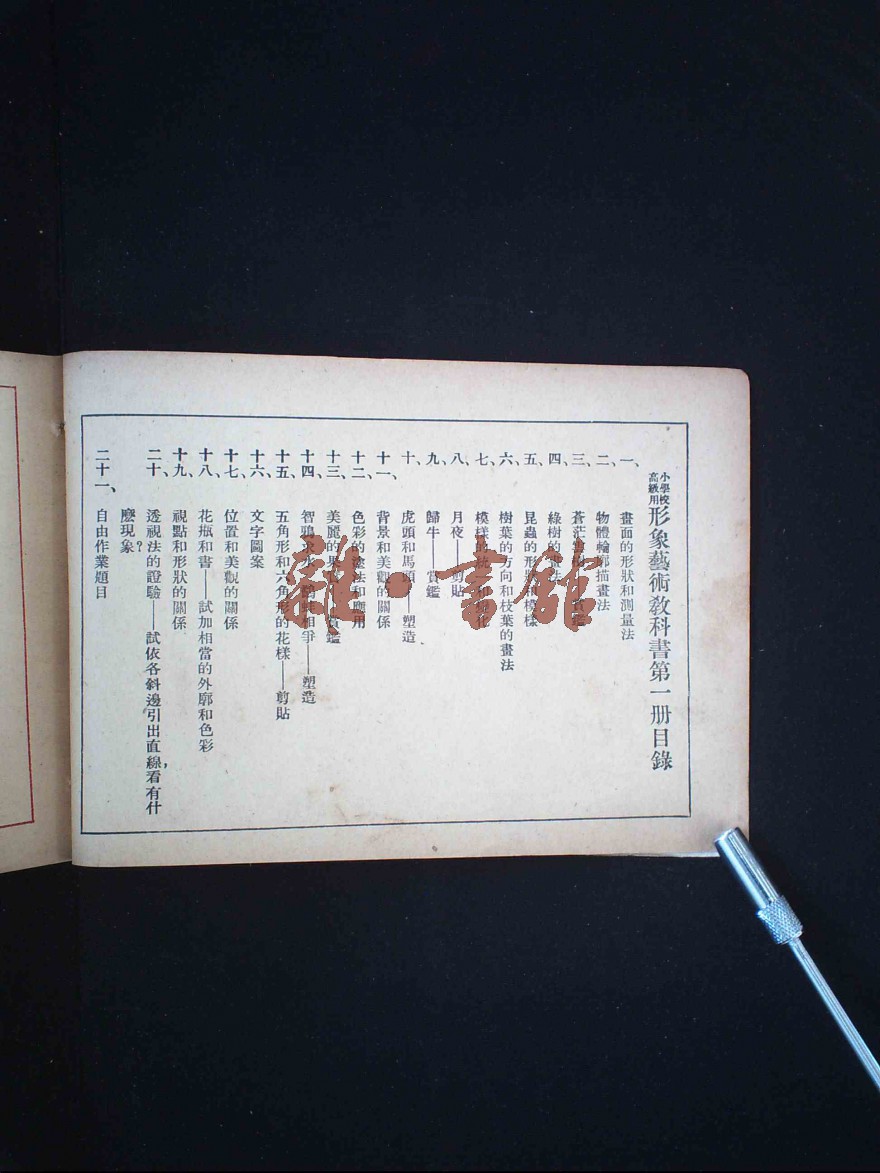 小學校高級用 形象藝術教科書第一册目錄
一、畫面的形狀和測量法
二、物體輪廓描畫法
三、蒼茫 賞鑑
四、綠樹的畫法
五、昆蟲的形狀和模樣
六、樹葉的方向和枝葉的畫法
七、模樣的 和變化
八、月夜——剪貼
九、歸牛——賞鑑
十、虎頭和馬頭——塑造
十一、背景和美觀的關係
十二、色彩的塗法和應用
十三、美麗的果 賞鑑
十四、智鴉求水 鷸蚌相爭——塑造
十五、五角形和六角形的花樣——剪貼
十六、文字圖案
十七、位置和美觀的關係
十八、花瓶和書——試加相當的外廓和色彩
十九、視點和形狀的關係
二十、透視法的證驗——試依各斜邊引出直線，看有什
麽現象？
二十一、自由作業題目
雜·書館